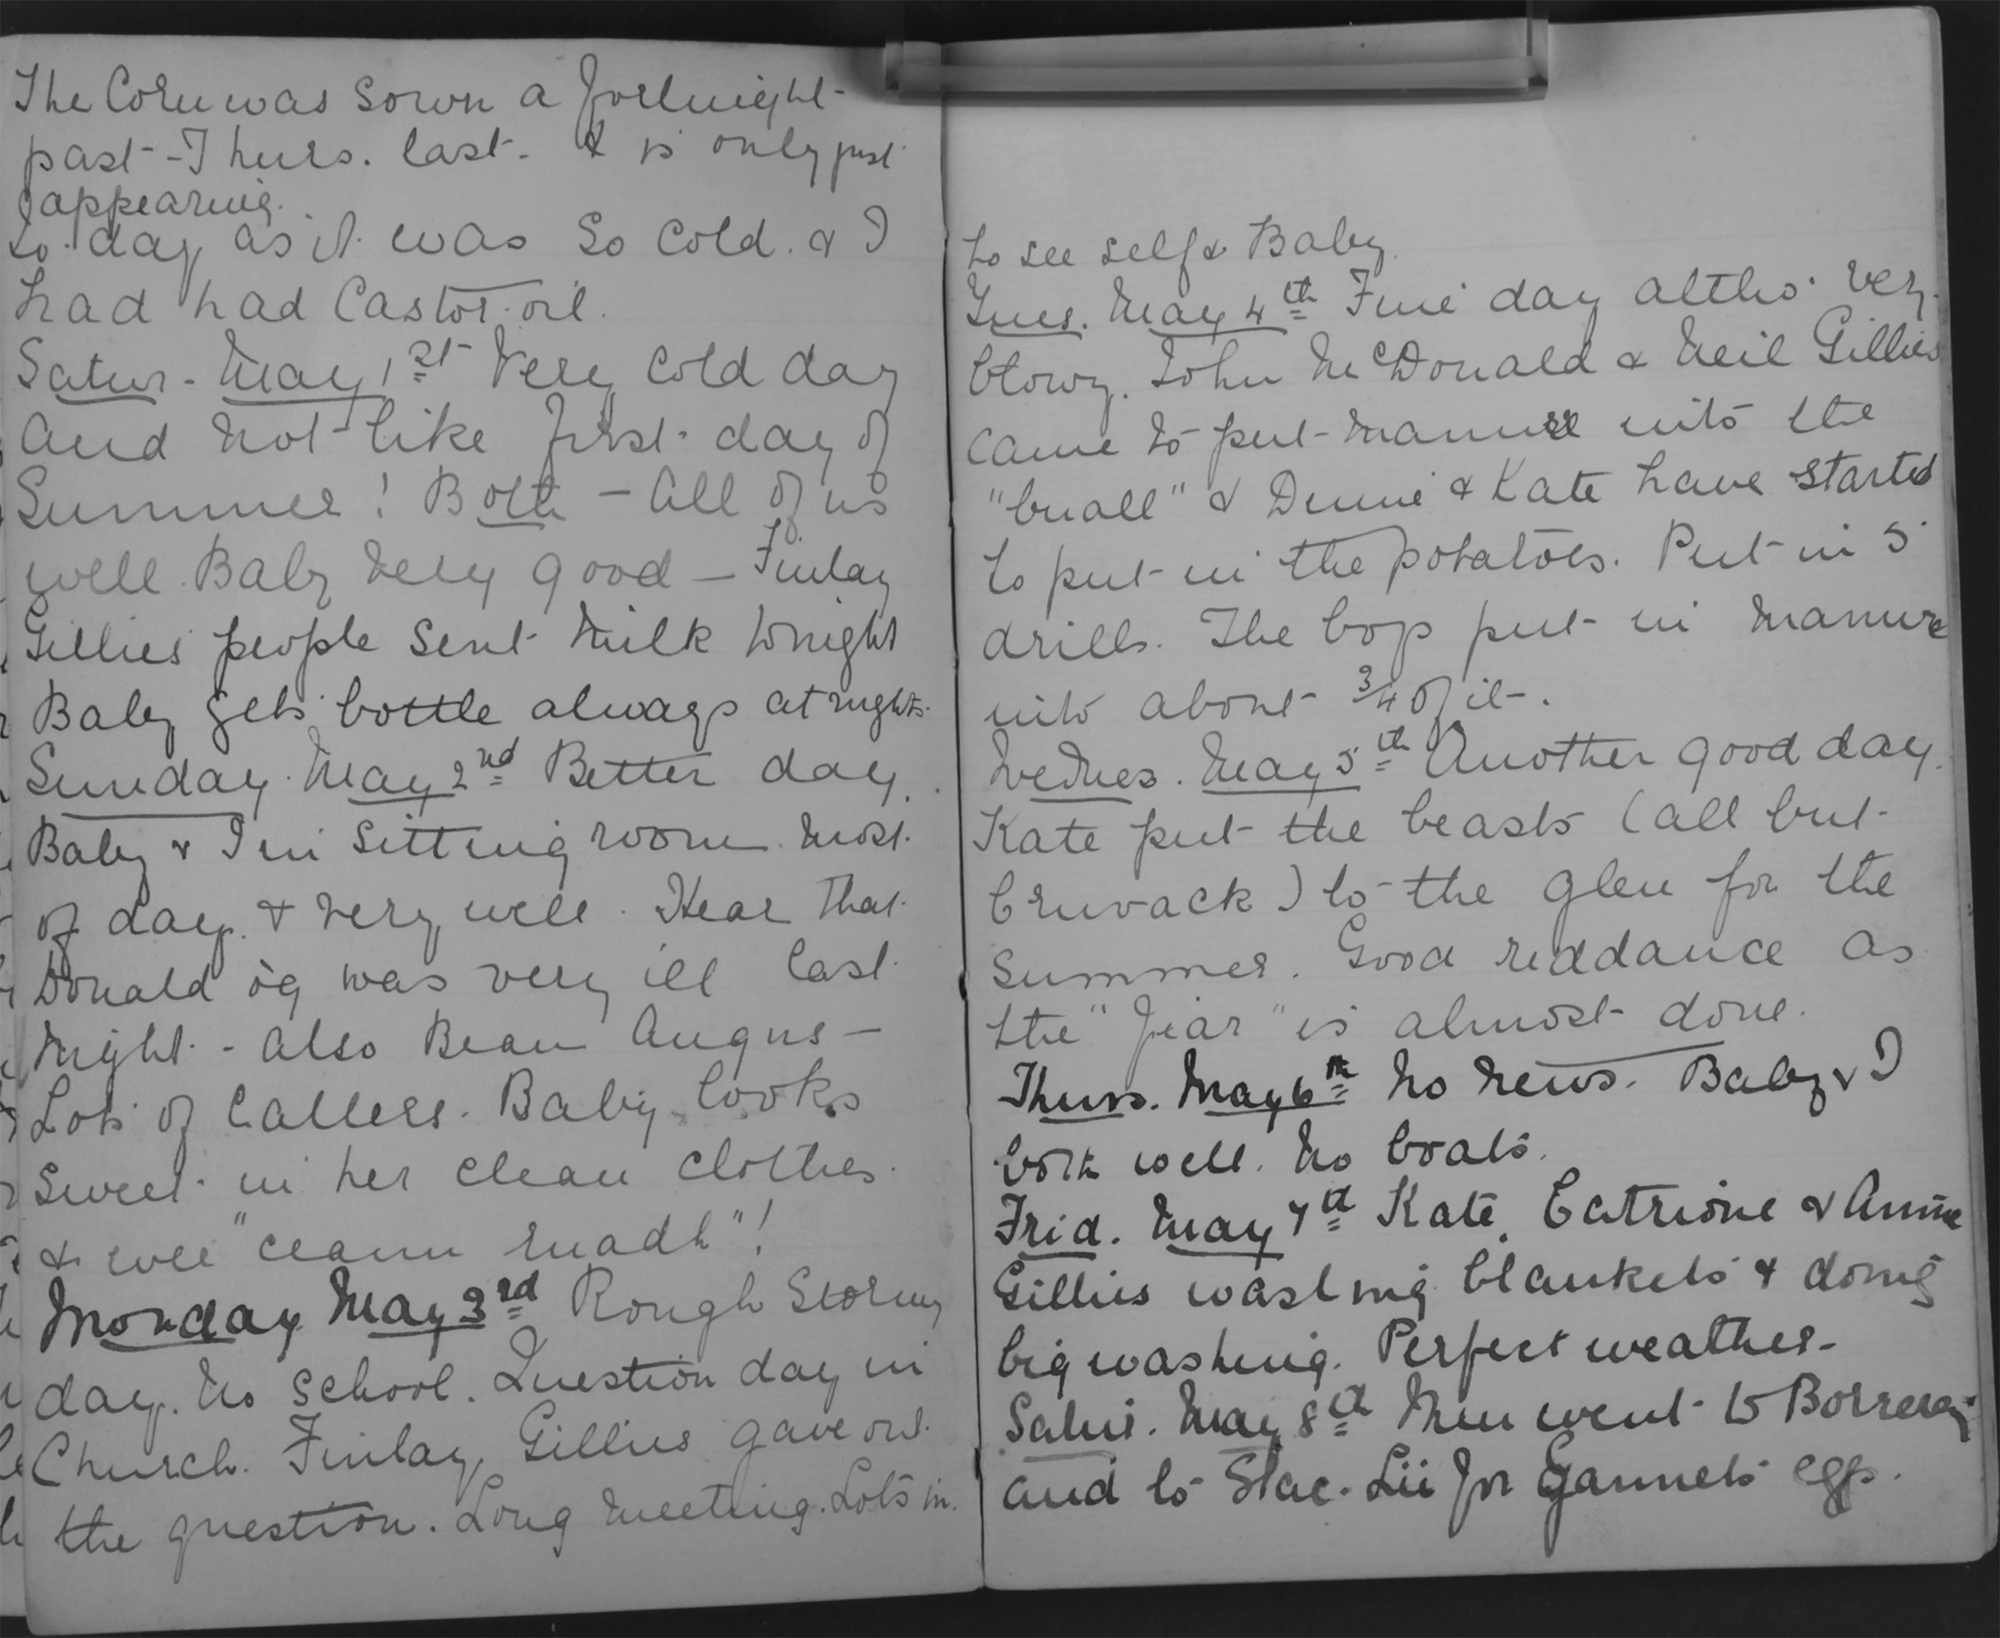 The Corn was sown a fortnight
past - Thurs. last. & is only just
appearing.
to-day as it was so cold. & I
had had Castor-oil.
Satur. May 1st Very cold day
and not like first day of
Summer! Both - all of us
well. Baby very good - Finlay
Gillies' people sent milk tonight
Baby gets bottle always at nights.
Sunday. May 2nd Better day.
Baby & I in Sitting room most
of day. & very well. Hear that
Donald òg was very ill last
night. - also Bean Angus -
Lots of Callers. Baby looks
sweet in her clean clothes.
& wee "ceann ruadh"!
Monday May 3rd Rough Stormy
day. No school. Question day in
Church. Finlay Gillies gave out
the question. Long meeting. Lots in.
to see self & Baby.
Tues. May 4th Fine day altho' very
blowy. John McDonald & Neil Gillies
came to put manure into the
"buall" & Dunie & Kate have started
to put in the potatoes. Put in 5
drills. The boys put in manure
into about 3/4 of it.
Wednes. May 5th Another good day.
Kate put the beasts (all but
Cruvack) to the glen for the
summer. Good reddance as
the "fiar" is almost done.
Thurs. May 6th No news. Baby & I
both well. No boats.
Frid. May 7th Kate, Catrione & Annie
Gillies washing blankets & doing
big washing. Perfect weather.
Satur. May 8th Men went to Borreray
and to Stac-Lii for Gannets eggs.